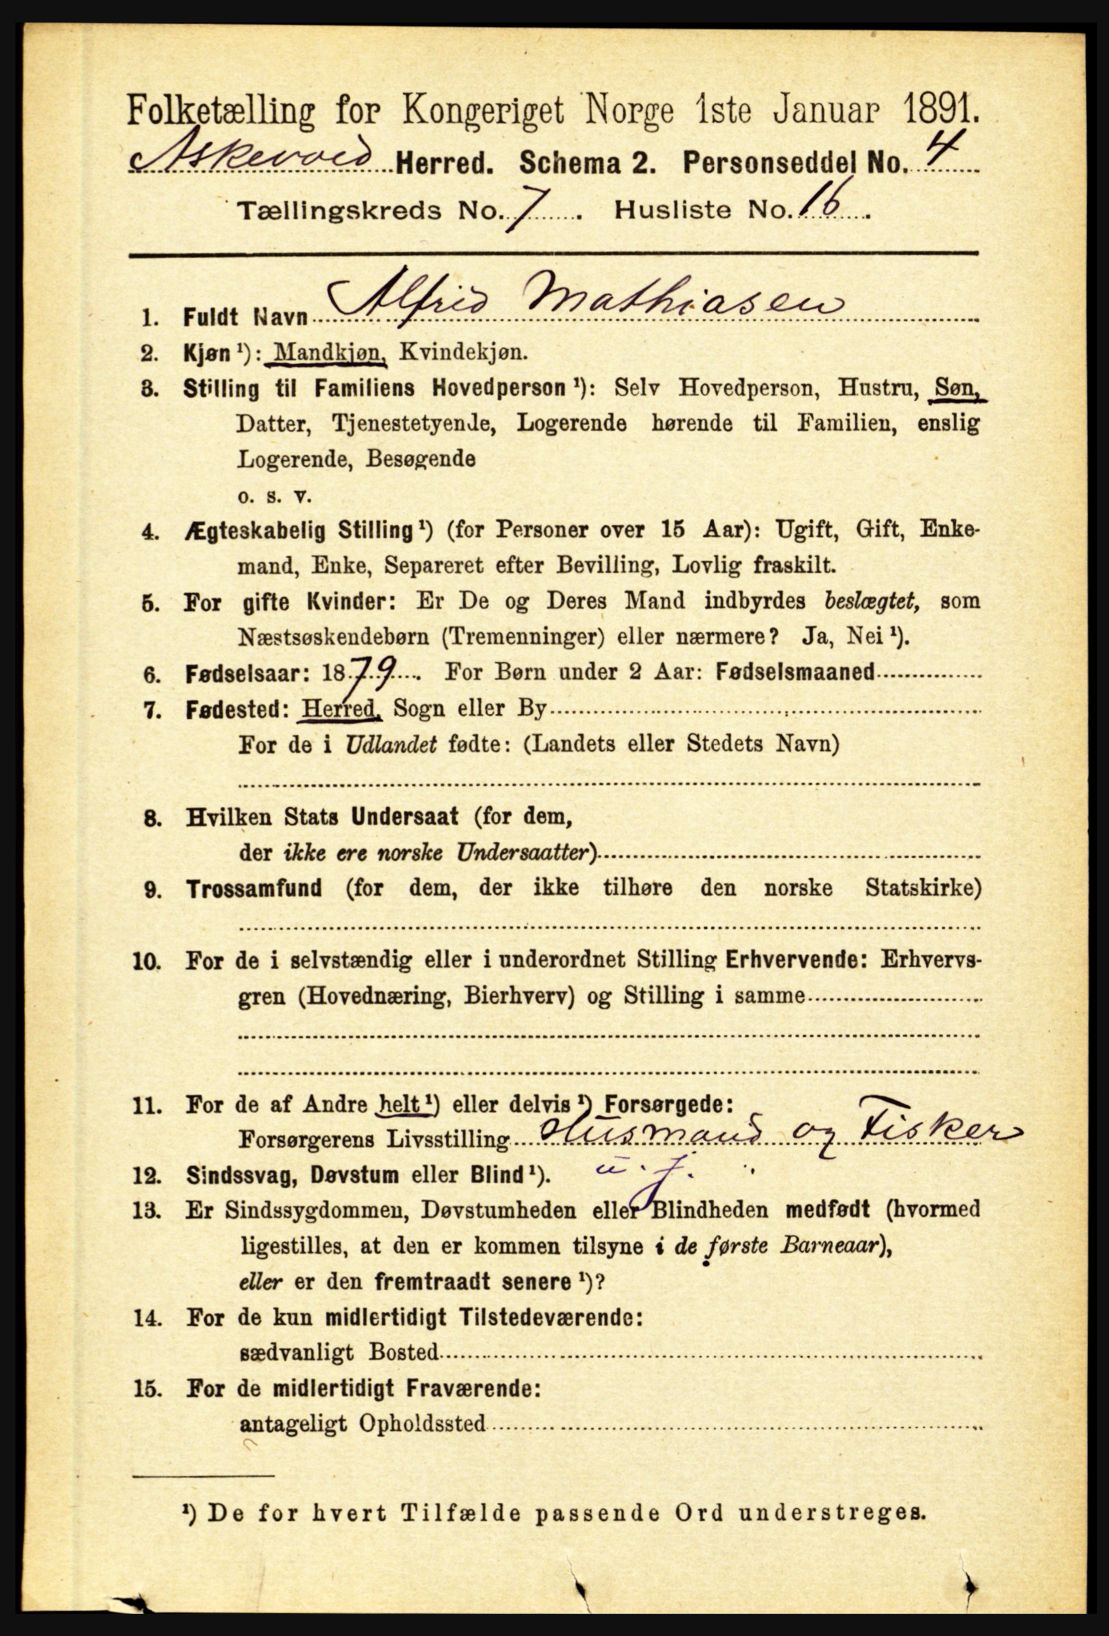 Folketælling for Kongeriget Norge 1ste Januar 1891.
Askevold Herred. Schema 2. Personseddel No. 4
Tællingskreds No. 7. Husliste No. 16.
1. Fuldt Navn Alfrid Mathiasen
2. Kjøn ¹): Mandkjøn, Kvindekjøn.
3. Stilling til Familiens Hovedperson ¹): Selv Hovedperson, Hustru, Søn,
Datter, Tjenestetyende, Logerende hørende til Familien, enslig
Logerende, Besøgende
o. s. v.
4. Ægteskabelig Stilling ¹) (for Personer over 15 Aar): Ugift, Gift, Enke-
mand, Enke, Separeret efter Bevilling, Lovlig fraskilt.
5. For gifte Kvinder: Er De og Deres Mand indbyrdes beslægtet, som
Næstsøskendebørn (Tremenninger) eller nærmere? Ja, Nei ¹).
6. Fødselsaar: 1879. For Børn under 2 Aar: Fødselsmaaned
7. Fødested: Herred, Sogn eller By
For de i Udlandet fødte: (Landets eller Stedets Navn)
8. Hvilken Stats Undersaat (for dem,
der ikke ere norske Undersaatter)
9. Trossamfund (for dem, der ikke tilhøre den norske Statskirke)
10. For de i selvstændig eller i underordnet Stilling Erhvervende: Erhvervs-
gren (Hovednæring, Bierhverv) og Stilling i samme
11. For de af Andre helt ¹) eller delvis ¹) Forsørgede:
Forsørgerens Livsstilling Husmand og Fisker
12. Sindssvag, Døvstum eller Blind ¹). u. j.
13. Er Sindssygdommen, Døvstumheden eller Blindheden medfødt (hvormed
ligestilles, at den er kommen tilsyne i de første Barneaar),
eller er den fremtraadt senere ¹)?
14. For de kun midlertidigt Tilstedeværende:
sædvanligt Bosted
15. For de midlertidigt Fraværende:
antageligt Opholdssted
¹) De for hvert Tilfælde passende Ord understreges.